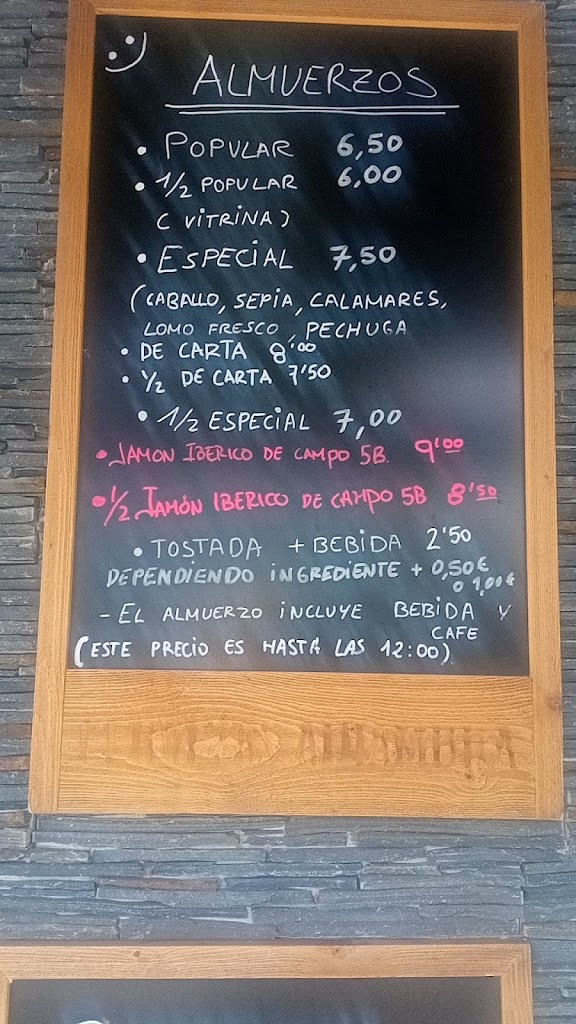 ALMUERZOS
• POPULAR 6,50
• 1/2 POPULAR 6,00
( VITRINA )
• ESPECIAL 7,50
(CABALLO, SEPIA, CALAMARES,
LOMO FRESCO, PECHUGA
• DE CARTA 8'00
• 1/2 DE CARTA 7'50
• 1/2 ESPECIAL 7,00
• JAMON IBERICO DE CAMPO 5B. 9'00
• 1/2 JAMÓN IBERICO DE CAMPO 5B 8'50
• TOSTADA + BEBIDA 2'50
DEPENDIENDO INGREDIENTE + 0,50€
O 1,00€
- EL ALMUERZO INCLUYE BEBIDA Y
CAFE
(ESTE PRECIO ES HASTA LAS 12:00)